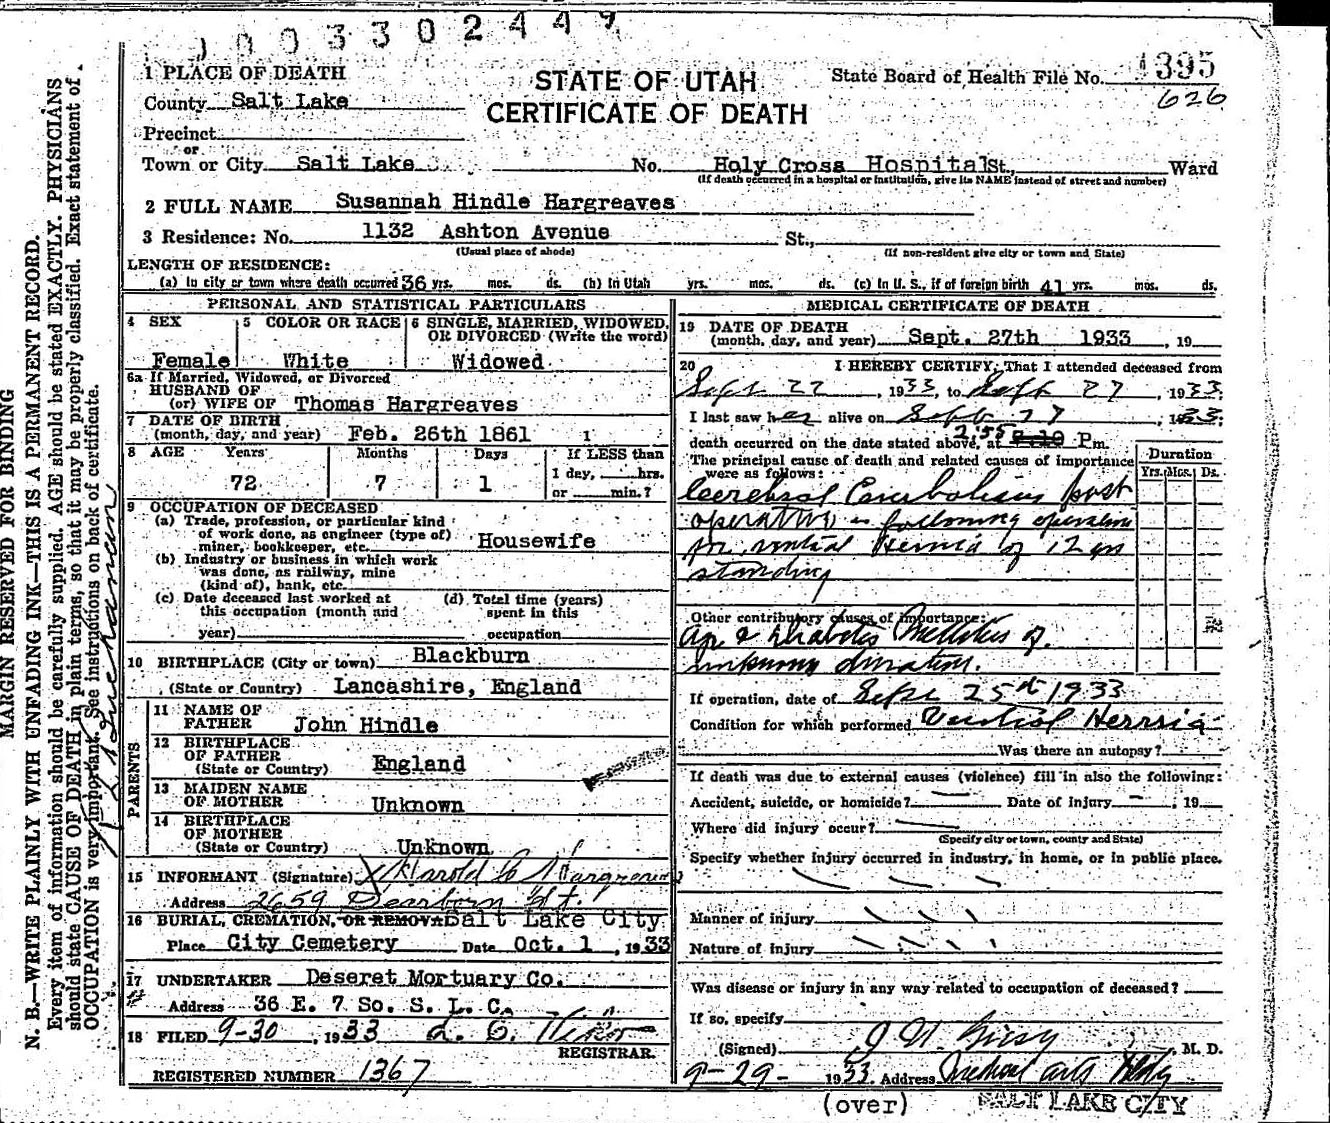 0003302449
1 PLACE OF DEATH
STATE OF UTAH
CERTIFICATE OF DEATH
State Board of Health File No. 1395
626
County Salt Lake
Precinct
or
Town or City Salt Lake No. Holy Cross Hospital St., Ward
(If death occurred in a hospital or institution, give its NAME instead of street and number)
2 FULL NAME Susannah Hindle Hargreaves
3 Residence: No. 1132 Ashton Avenue St.,
(Usual place of abode) (If non-resident give city or town and State)
LENGTH OF RESIDENCE:
(a) In city or town where death occurred 36 yrs. mos. ds. (b) In Utah yrs. mos. ds. (c) In U. S., if of foreign birth 41 yrs. mos. ds.
PERSONAL AND STATISTICAL PARTICULARS
4 SEX 5 COLOR OR RACE 6 SINGLE, MARRIED, WIDOWED, OR DIVORCED (Write the word)
Female White Widowed
6a If Married, Widowed, or Divorced
HUSBAND OF
(or) WIFE OF Thomas Hargreaves
7 DATE OF BIRTH
(month, day, and year) Feb. 26th 1861
8 AGE Years Months Days If LESS than
1 day, hrs.
72 7 1 or min.?
9 OCCUPATION OF DECEASED
(a) Trade, profession, or particular kind
of work done, as engineer (type of)
miner, bookkeeper, etc. Housewife
(b) Industry or business in which work
was done, as railway, mine
(kind of), bank, etc.
(c) Date deceased last worked at
this occupation (month and
year)
(d) Total time (years)
spent in this
occupation
10 BIRTHPLACE (City or town) Blackburn
(State or Country) Lancashire, England
PARENTS
11 NAME OF
FATHER John Hindle
12 BIRTHPLACE
OF FATHER
(State or Country) England
13 MAIDEN NAME
OF MOTHER Unknown
14 BIRTHPLACE
OF MOTHER
(State or Country) Unknown
15 INFORMANT (Signature) X Harold C Hargreaves
Address 2659 Dearborn St.
16 BURIAL, CREMATION, OR REMOVAL Salt Lake City
Place City Cemetery Date Oct. 1, 1933
17 UNDERTAKER Deseret Mortuary Co.
Address 36 E. 7 So. S. L. C.
18 FILED 9-30, 1933
REGISTRAR.
REGISTERED NUMBER 1367
MEDICAL CERTIFICATE OF DEATH
19 DATE OF DEATH
(month, day, and year) Sept. 27th 1933, 19
20 I HEREBY CERTIFY, That I attended deceased from
Sept 22, 1933, to Sept 27, 1933.
I last saw her alive on Sept 27, 1933;
death occurred on the date stated above, at 2:55 P m.
The principal cause of death and related causes of importance
were as follows:
Duration
Yrs. Mos. Ds.
Cerebral Embolism post
operative following operation
for ventral Hernia of 12 yrs
standing
Other contributory causes of importance:
Diabetes Mellitus of
unknown duration.
If operation, date of Sept 25th 1933
Condition for which performed Ventral Hernia
Was there an autopsy?
If death was due to external causes (violence) fill in also the following:
Accident, suicide, or homicide? — Date of injury —, 19
Where did injury occur?
(Specify city or town, county and State)
Specify whether injury occurred in industry, in home, or in public place.
Manner of injury
Nature of injury
Was disease or injury in any way related to occupation of deceased?
If so, specify
(Signed) M. D.
9-29- 1933. Address Medical Arts Bldg
(over) SALT LAKE CITY
MARGIN RESERVED FOR BINDING
N. B.—WRITE PLAINLY WITH UNFADING INK—THIS IS A PERMANENT RECORD.
Every item of information should be carefully supplied. AGE should be stated EXACTLY. PHYSICIANS
should state CAUSE OF DEATH in plain terms, so that it may be properly classified. Exact statement of
OCCUPATION is very important. See instructions on back of certificate.